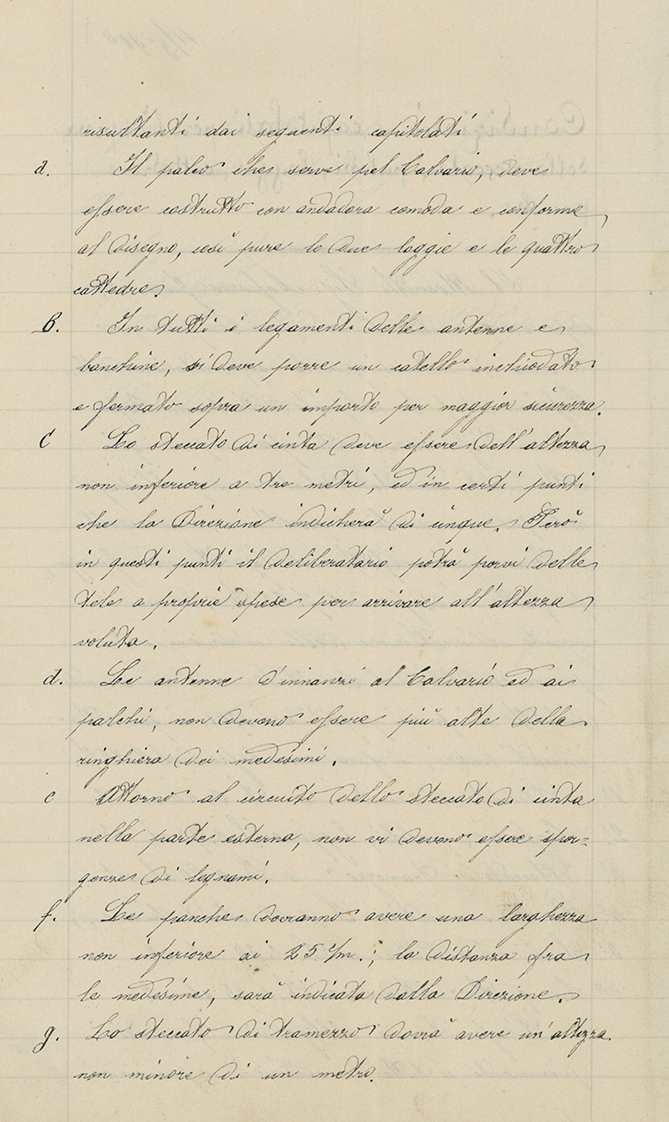 risultanti dai seguenti capitolati
a. Il palco che serve pel Calvario, deve
essere costrutto con andadora comoda e conforme
al disegno, così pure le due loggie e le quattro
cattedre.
B. In tutti i legamenti delle antenne e
banchine, si deve porre un catello inchiodato
e fermato sopra un importo per maggior sicurezza.
C Lo steccato di cinta deve essere dell'altezza
non inferiore a tre metri, ed in certi punti
che la Direzione indicherà di cinque. Però
in questi punti il deliberatario potrà porvi delle
tele a proprie spese per arrivare all'altezza
voluta.
d. Le antenne d'innanzi al Calvario ed ai
palchi, non devono essere più alte della
ringhiera dei medesimi.
e Attorno al circuito dello steccato di cinta
nella parte esterna, non vi devono essere spor=
genze di legnami.
f. Le panche dovranno avere una larghezza
non inferiore ai 25 c/m.; la distanza fra
le medesime, sarà indicata dalla Direzione.
g. Lo steccato di tramezzo dovrà avere un'altezza
non minore di un metro.